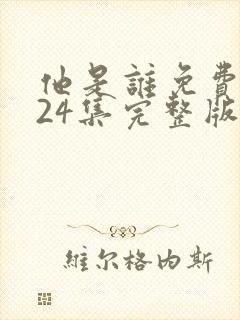 他是誰免費
24集完整版
維尔格内斯